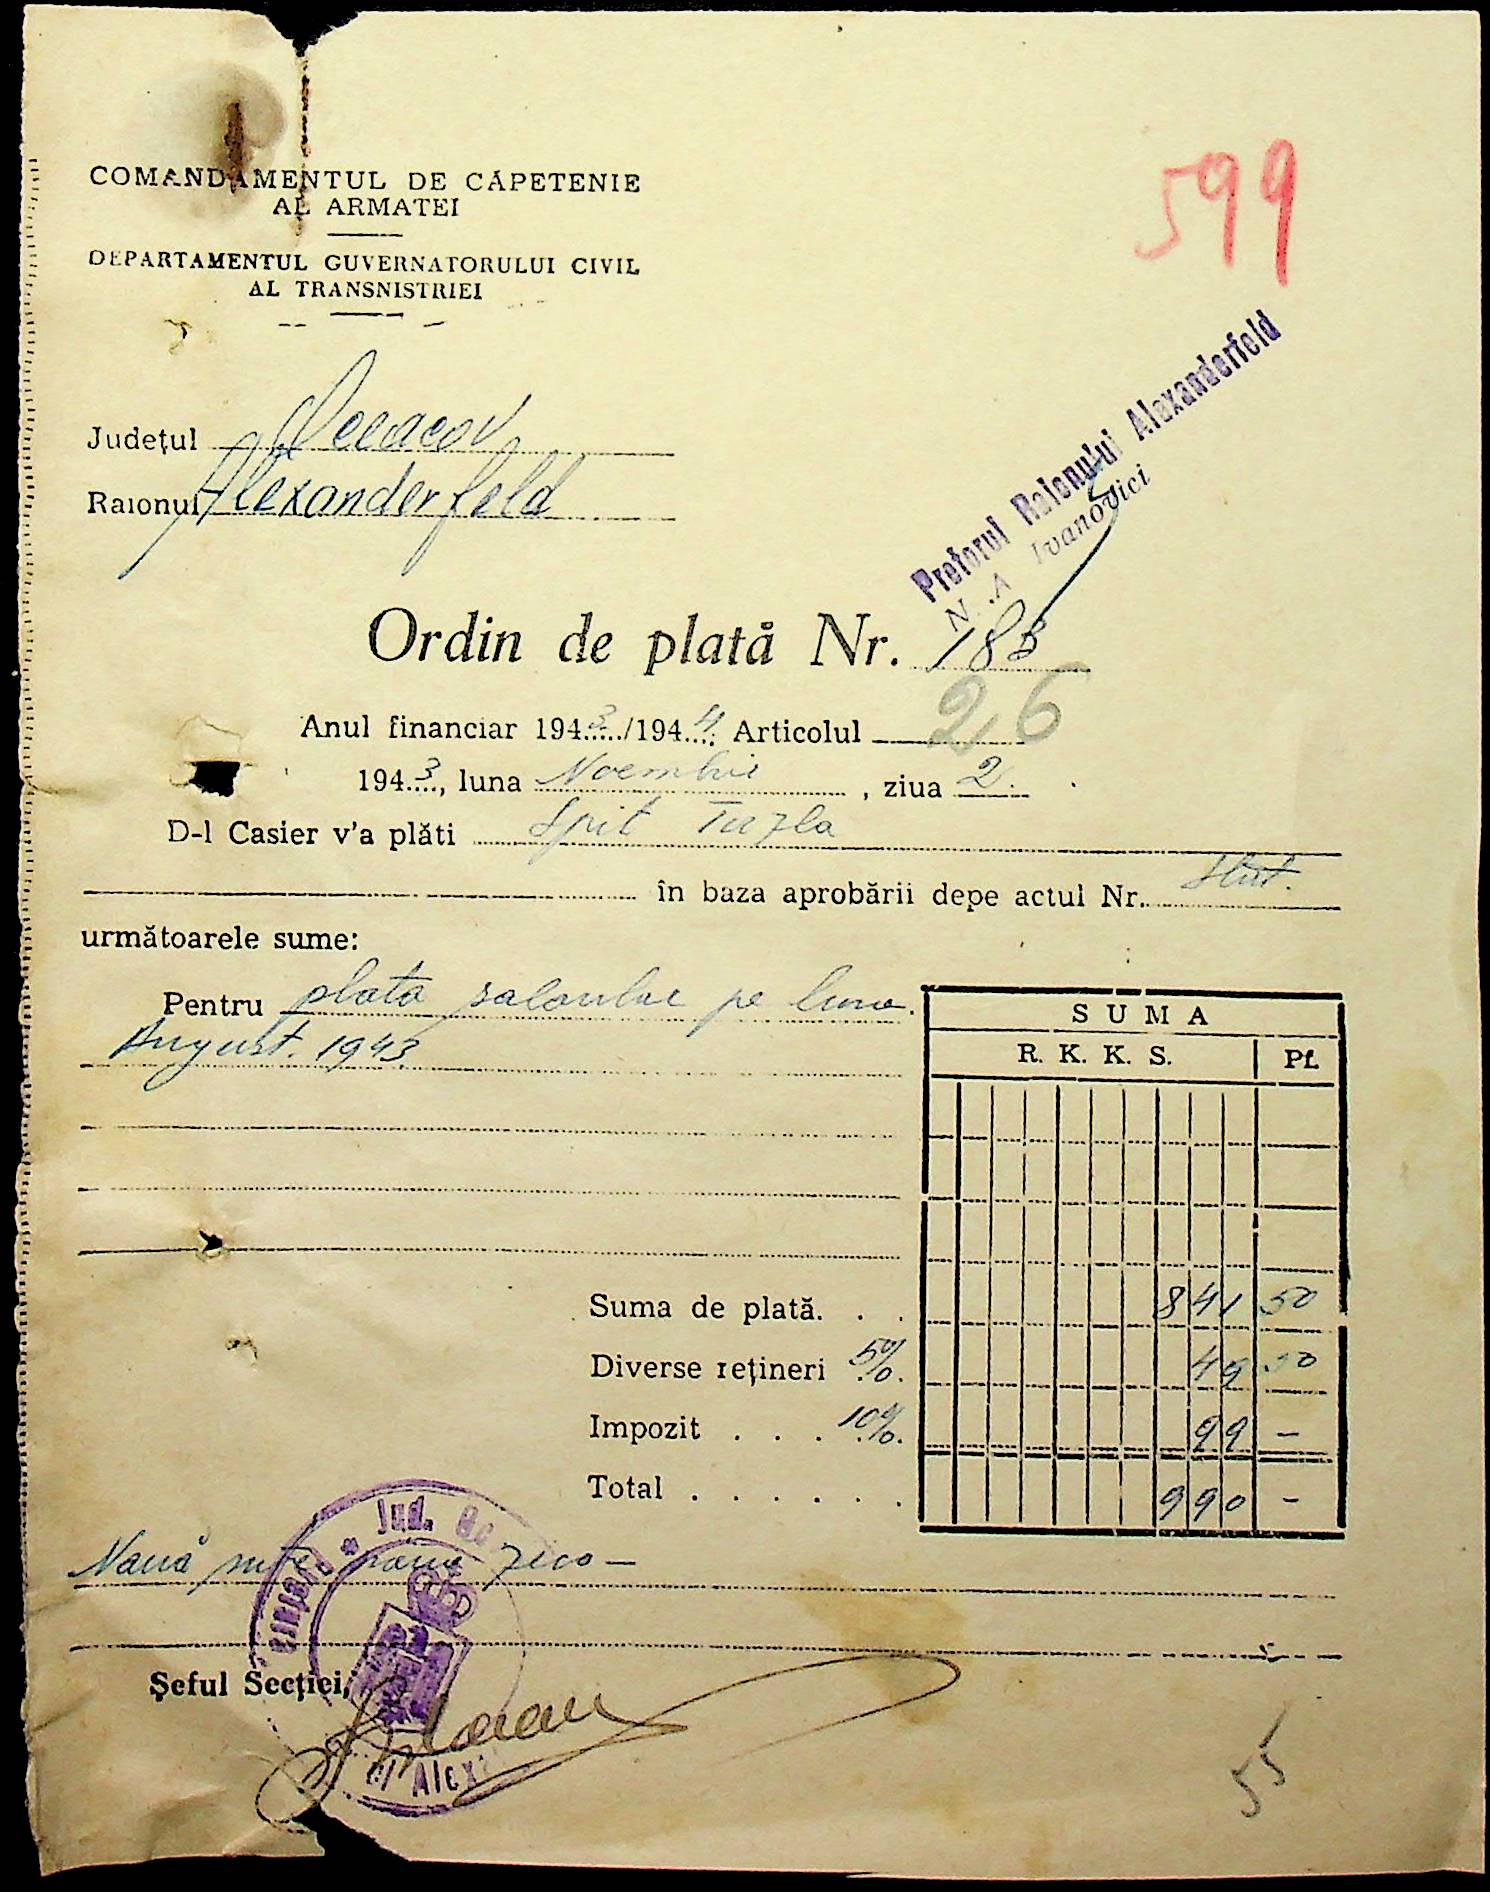 COMANDAMENTUL DE CĂPETENIE
AL ARMATEI
DEPARTAMENTUL GUVERNATORULUI CIVIL
AL TRANSNISTRIEI
599
Județul
Raionul Alexanderfeld
Pretorul Raionului Alexanderfeld
N. A Ivanovici
Ordin de plată Nr. 183
26
Anul financiar 1943/1944 Articolul
1943, luna Noembrie, ziua 2.
D-l Casier v'a plăti Spit Tuzla
în baza aprobării depe actul Nr. Stat.
următoarele sume:
Pentru plata salariului pe luna
August. 1943
SUMA
R. K. K. S. Pf.
Suma de plată. . . 841 50
Diverse rețineri 5%. 49 50
Impozit . . . 10%. 99 –
Total . . . . . . . 990 –
Nouă sute nouă zeci –
Jud. Oc
Pretura
Șeful Secției,
Alex
55